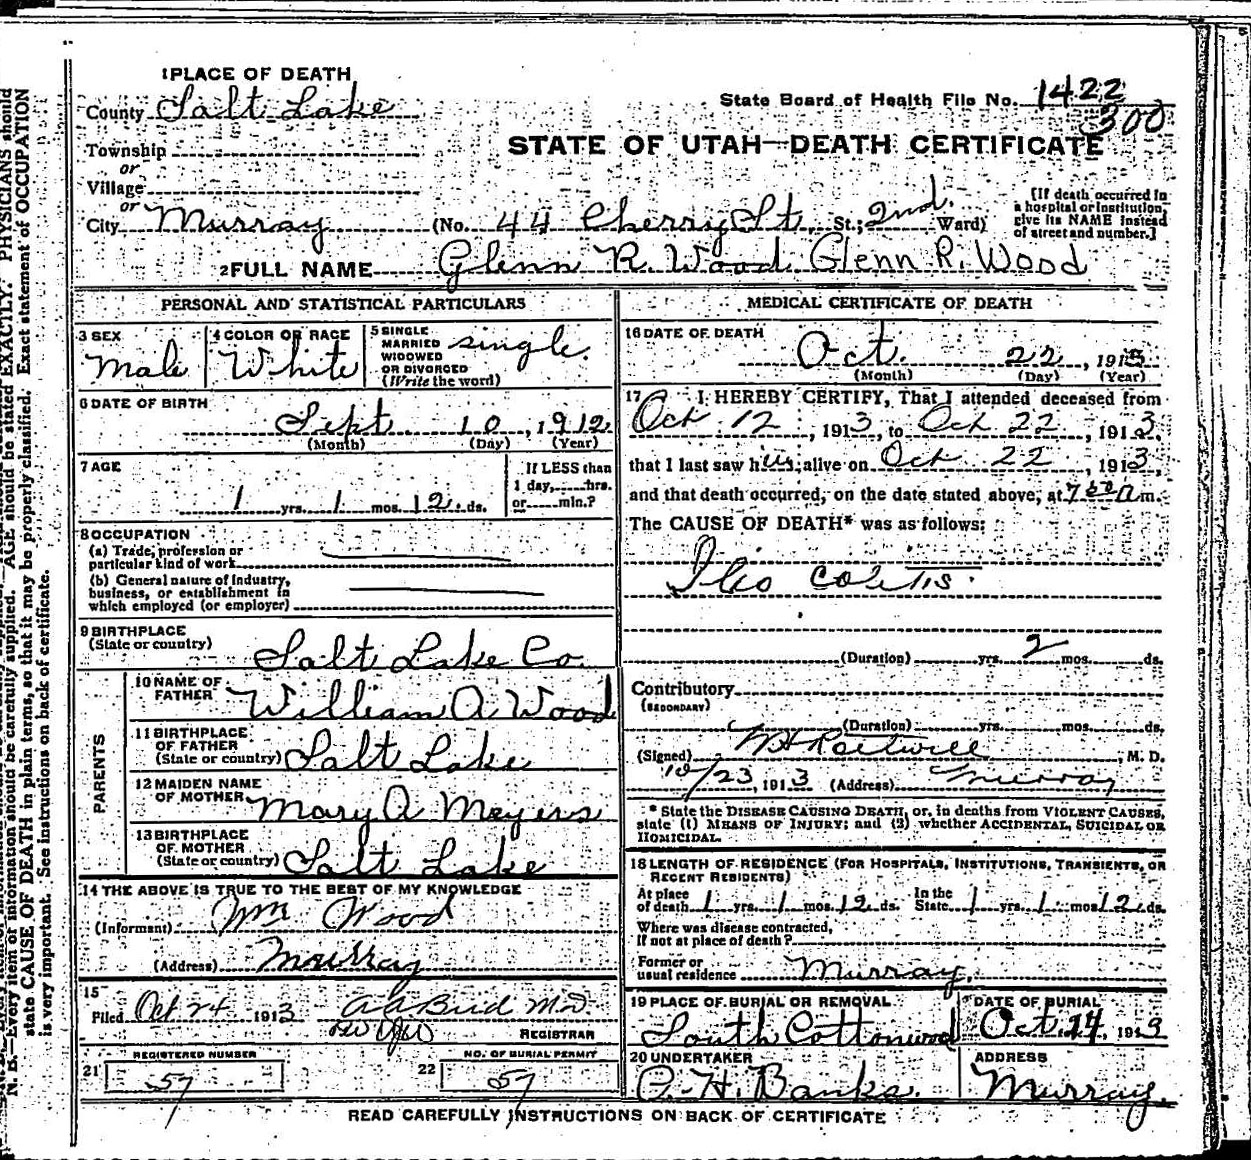 1 PLACE OF DEATH
County Salt Lake
State Board of Health File No. 1422
300
Township
or
STATE OF UTAH—DEATH CERTIFICATE
Village
or
City Murray (No. 44 Cherry St. St.; 2nd. Ward)
[If death occurred in a hospital or institution, give its NAME instead of street and number.]
2 FULL NAME Glenn R. Wood Glenn R. Wood
PERSONAL AND STATISTICAL PARTICULARS
3 SEX Male
4 COLOR OR RACE White
5 SINGLE MARRIED WIDOWED OR DIVORCED (Write the word) single.
6 DATE OF BIRTH
Sept. 10, 1912
(Month) (Day) (Year)
7 AGE
1 yrs. 1 mos. 12 ds.
If LESS than 1 day, hrs. or min.?
8 OCCUPATION
(a) Trade, profession or particular kind of work
(b) General nature of industry, business, or establishment in which employed (or employer)
9 BIRTHPLACE
(State or country) Salt Lake Co.
PARENTS
10 NAME OF FATHER William A Wood
11 BIRTHPLACE OF FATHER (State or country) Salt Lake
12 MAIDEN NAME OF MOTHER Mary A Meyers
13 BIRTHPLACE OF MOTHER (State or country) Salt Lake
14 THE ABOVE IS TRUE TO THE BEST OF MY KNOWLEDGE
(Informant) Wm Wood
(Address) Murray
15
Filed Oct 24 1913
REGISTRAR
REGISTERED NUMBER
21 57
NO. OF BURIAL PERMIT
22 57
MEDICAL CERTIFICATE OF DEATH
16 DATE OF DEATH
Oct. 22, 1913
(Month) (Day) (Year)
17 I HEREBY CERTIFY, That I attended deceased from
Oct 12, 1913, to Oct 22, 1913,
that I last saw him alive on Oct 22, 1913,
and that death occurred, on the date stated above, at m.
The CAUSE OF DEATH* was as follows:
Ilio colitis.
(Duration) yrs. 2 mos. ds.
Contributory
(SECONDARY)
(Duration) yrs. mos. ds.
(Signed) M. D.
10/23, 1913 (Address) Murray
* State the DISEASE CAUSING DEATH, or, in deaths from VIOLENT CAUSES, state (1) MEANS OF INJURY; and (2) whether ACCIDENTAL, SUICIDAL OR HOMICIDAL.
18 LENGTH OF RESIDENCE (FOR HOSPITALS, INSTITUTIONS, TRANSIENTS, OR RECENT RESIDENTS)
At place of death 1 yrs. 1 mos. 12 ds. In the State 1 yrs. 1 mos. 12 ds.
Where was disease contracted, if not at place of death?
Former or usual residence Murray
19 PLACE OF BURIAL OR REMOVAL South Cottonwood
DATE OF BURIAL Oct. 1913
20 UNDERTAKER Banks.
ADDRESS Murray.
READ CAREFULLY INSTRUCTIONS ON BACK OF CERTIFICATE
N. B.—Every item of information should be carefully supplied. AGE should be stated EXACTLY. PHYSICIANS should
state CAUSE OF DEATH in plain terms, so that it may be properly classified. Exact statement of OCCUPATION
is very important. See instructions on back of certificate.